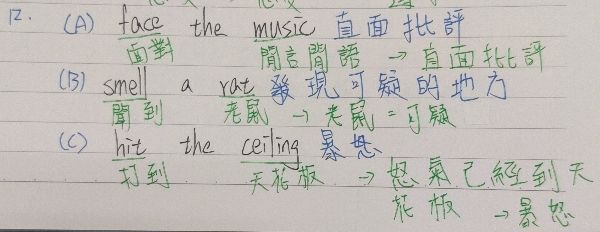 12. (A) face the music 直面批評
面對 閒言閒語 → 直面批評
(B) smell a rat 發現可疑的地方
聞到 老鼠 → 老鼠 = 可疑
(C) hit the ceiling 暴怒
打到 天花板 → 怒氣已經到天
花板 → 暴怒